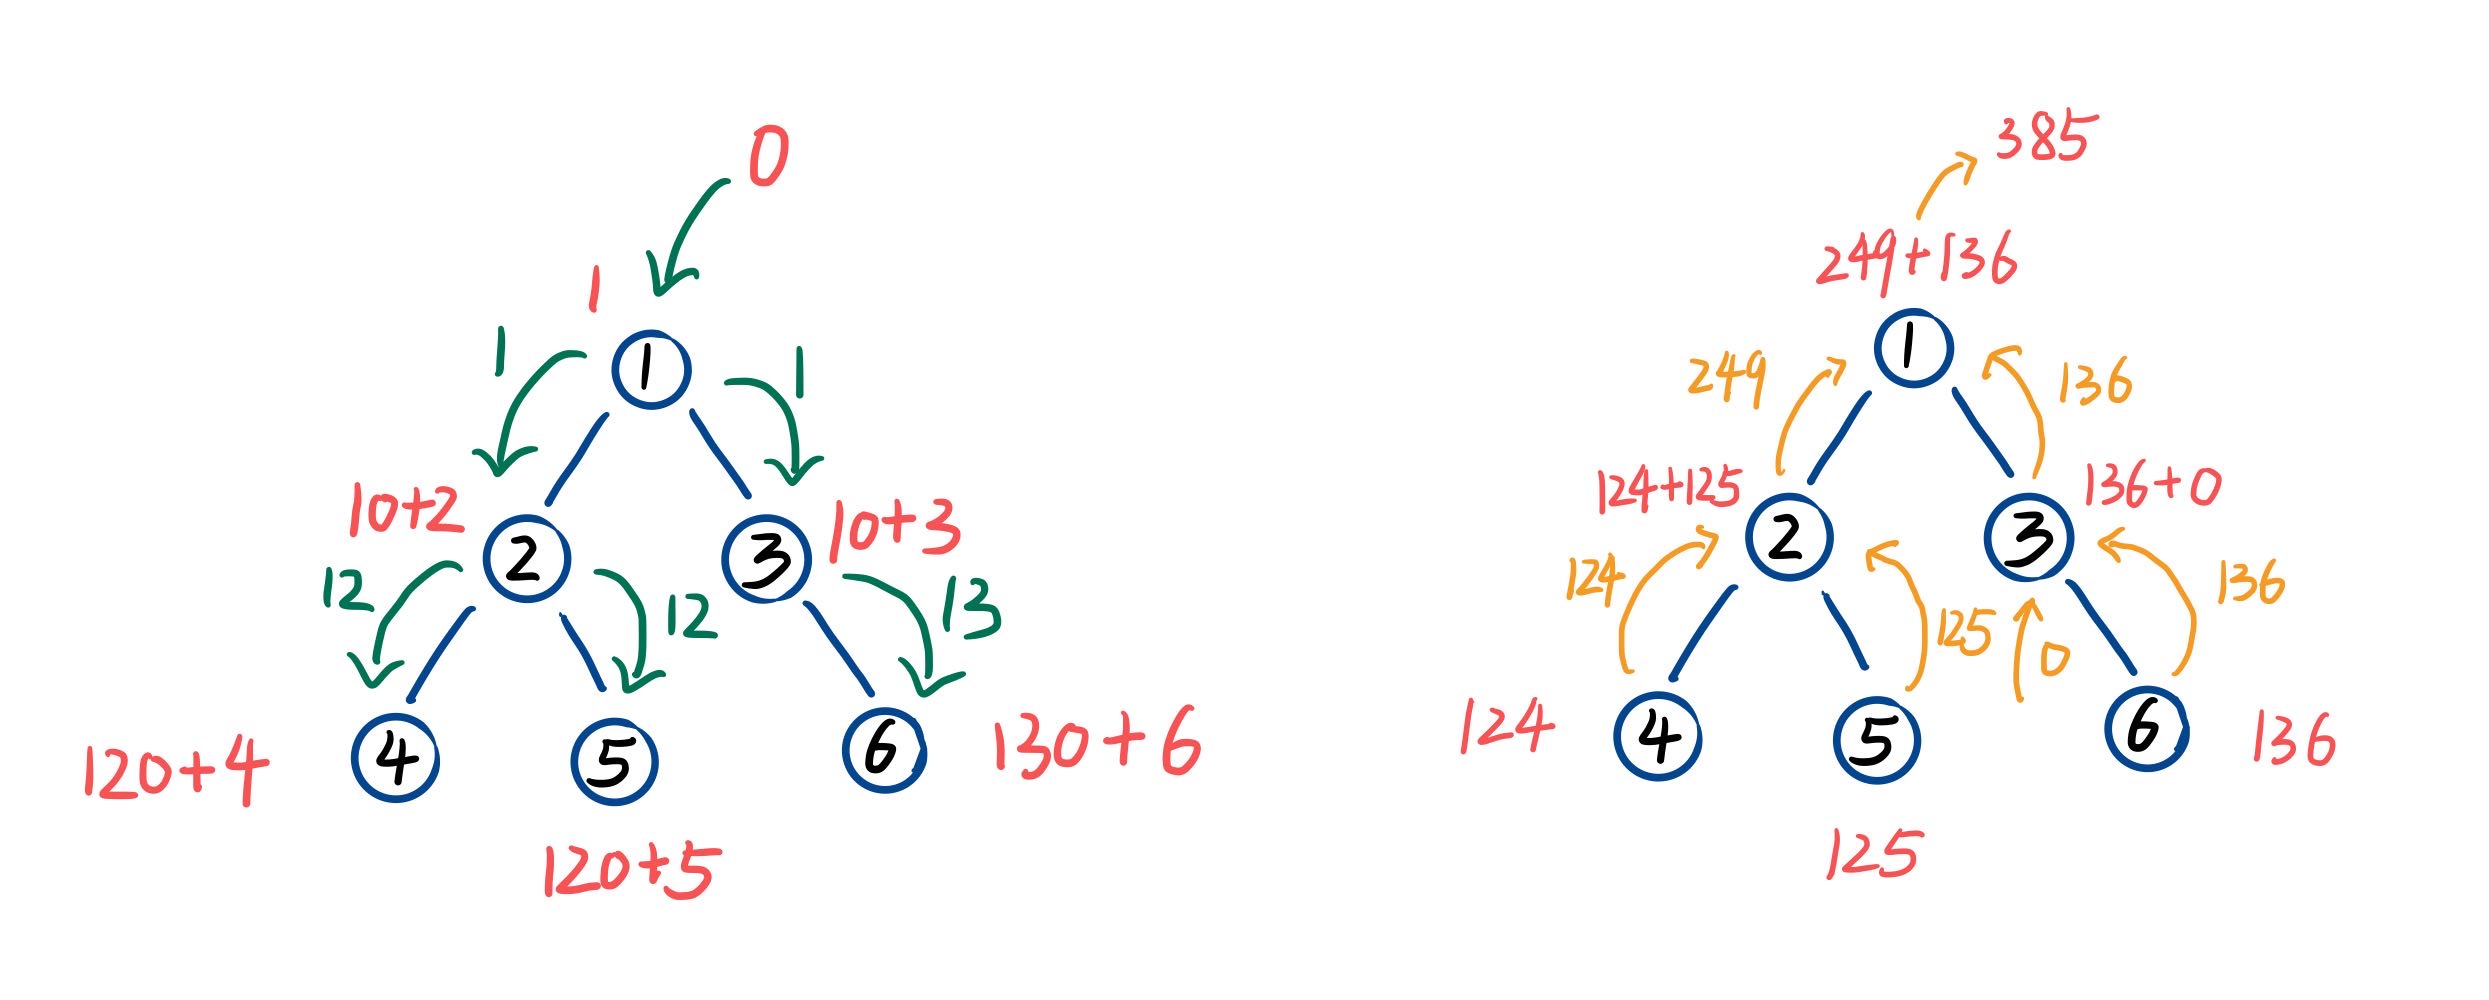 0
1
1
1
1
10+2
10+3
2
3
12
12
13
120+4
4
5
6
130+6
120+5
385
249+136
1
249
136
124+125
136+0
2
3
124
125
0
136
124
4
5
6
136
125